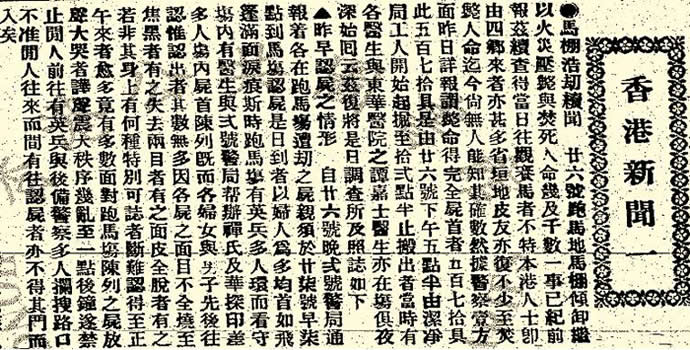 香港新聞一
●馬棚浩刼續聞　廿六號跑馬地馬棚傾御繼
以火災壓斃與焚死人命幾及千數一事已紀前
報茲續查得當日往觀賽馬者不特本港人士卽
由四鄉來者亦甚多省垣地皮友亦復不少至焚
斃人命迄今尚無人能知其確數然據警察壹方
面昨日詳報謂斃命得完全屍首者五百七拾具
此五百七拾具是由廿六號下午五點半由潔淨
局工人開始起掘至拾弍點半止搬出者當時有
各醫生與東華醫院之譚嘉士醫生亦在塲俱夜
深始回云茲復將是日調查所及照誌如下
▲昨早認屍之情形　自廿六號晚弍號警局通
報着各在跑馬塲遭刼之屍親須於廿柒號早柒
點到馬塲認屍是日到者以婦人爲多均首如飛
蓬滿面淚痕斯時跑馬塲有英兵多人環而看守
塲內有醫生與弍號警局帮辦禪氏及華探印差
多人塲內屍首陳列旣而各婦女與男子先後往
認惟認出者其數無多因各屍之面目不全燒至
焦黑者有之失去兩目者有之面皮全脫者有之
若非其身上有何種特別可誌者斷難認得至正
午來者愈多竟有多數面對跑馬塲陳列之屍放
聲大哭者譁聲震天秩序幾亂至一點後鐘遂禁
止閒人前往有英兵與後備警察多人攔搜路口
不准閒人往來而間有往認屍者亦不得其門而
入矣